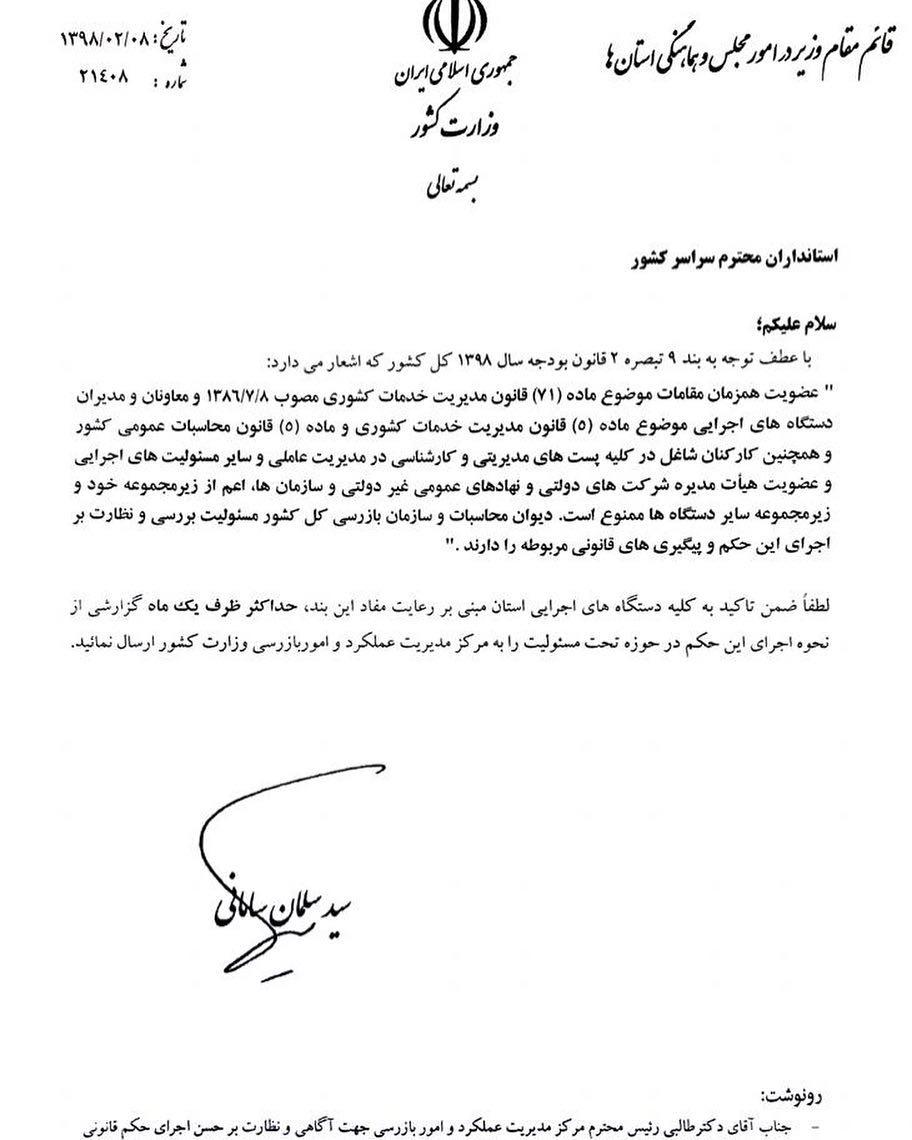 قائم مقام وزیر در امور مجلس و هماهنگی استان ها
جمهوری اسلامی ایران
وزارت کشور
بسمه تعالی
تاریخ: ۱۳۹۸/۰۲/۰۸
شماره : ۲۱۴۰۸
استانداران محترم سراسر کشور
سلام علیکم؛
با عطف توجه به بند ۹ تبصره ۲ قانون بودجه سال ۱۳۹۸ کل کشور که اشعار می دارد:
" عضویت همزمان مقامات موضوع ماده (۷۱) قانون مدیریت خدمات کشوری مصوب ۱۳۸۶/۷/۸ و معاونان و مدیران
دستگاه های اجرایی موضوع ماده (۵) قانون مدیریت خدمات کشوری و ماده (۵) قانون محاسبات عمومی کشور
و همچنین کارکنان شاغل در کلیه پست های مدیریتی و کارشناسی در مدیریت عاملی و سایر مسئولیت های اجرایی
و عضویت هیأت مدیره شرکت های دولتی و نهادهای عمومی غیر دولتی و سازمان ها، اعم از زیرمجموعه خود و
زیرمجموعه سایر دستگاه ها ممنوع است. دیوان محاسبات و سازمان بازرسی کل کشور مسئولیت بررسی و نظارت بر
اجرای این حکم و پیگیری های قانونی مربوطه را دارند ."
لطفاً ضمن تاکید به کلیه دستگاه های اجرایی استان مبنی بر رعایت مفاد این بند، حداکثر ظرف یک ماه گزارشی از
نحوه اجرای این حکم در حوزه تحت مسئولیت را به مرکز مدیریت عملکرد و اموربازرسی وزارت کشور ارسال نمائید.
سید سلمان سامانی
رونوشت:
- جناب آقای دکترطالبی رئیس محترم مرکز مدیریت عملکرد و امور بازرسی جهت آگاهی و نظارت بر حسن اجرای حکم قانونی